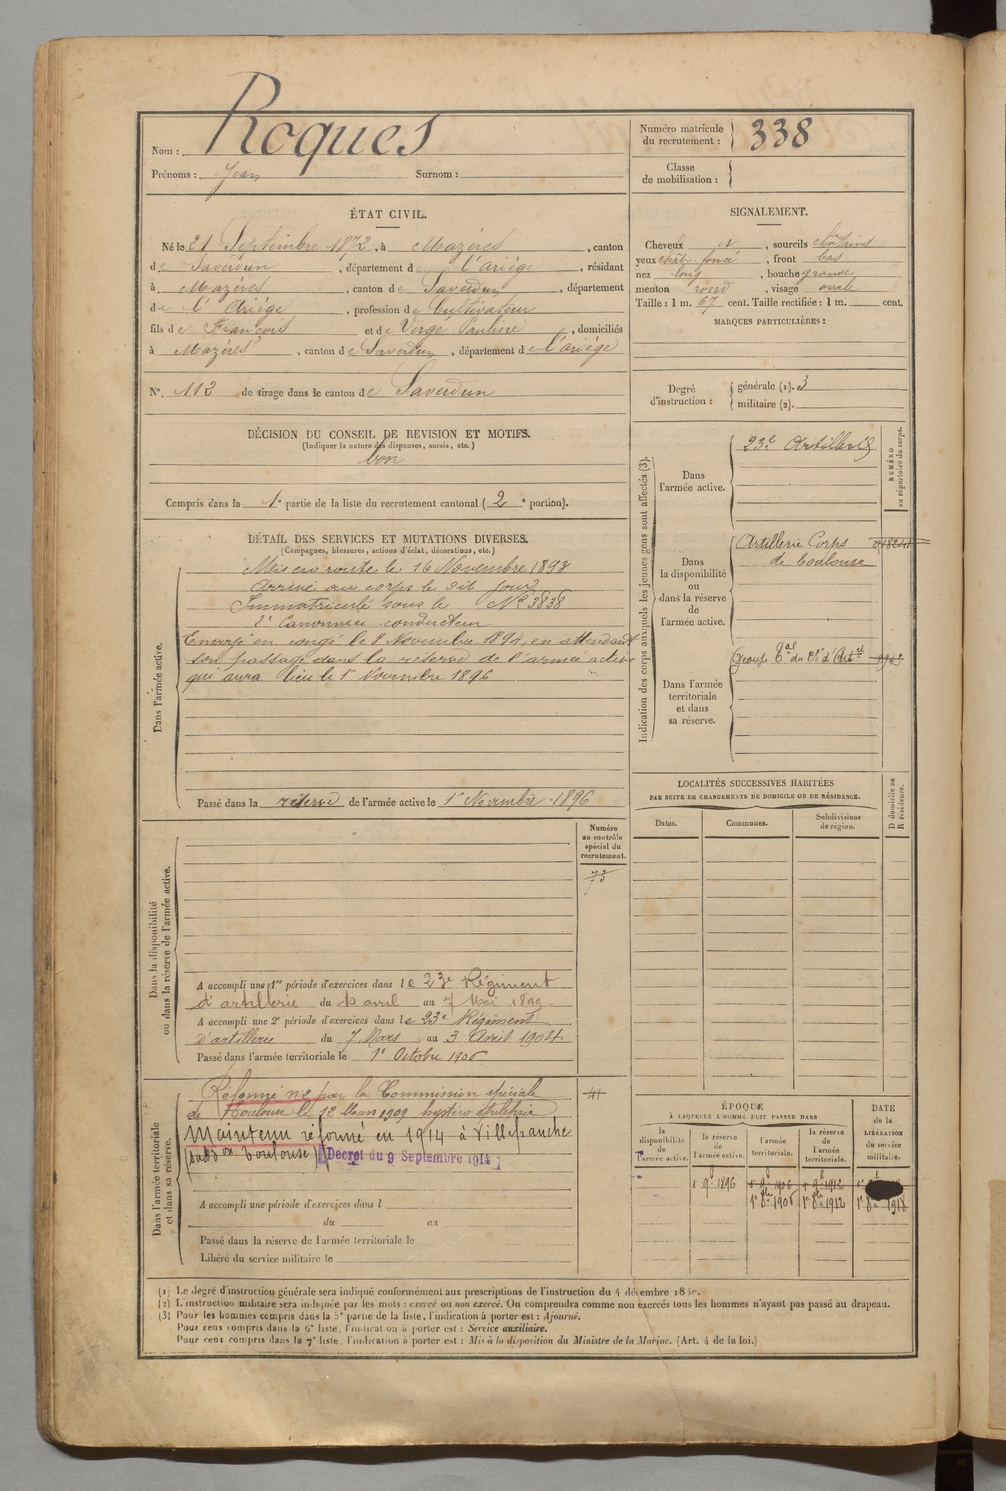 Nom : Roques
Prénoms : Jean Surnom :
Numéro matricule du recrutement : 338
Classe de mobilisation :
ÉTAT CIVIL.
Né le 21 Septembre 1872, à Mazères, canton
de Saverdun, département de l'ariége, résidant
à Mazères, canton de Saverdun, département
de l'Ariége, profession de Cultivateur
fils de François et de Vergé Pauline, domiciliés
à Mazères, canton de Saverdun, département de l'ariége
N° 112 de tirage dans le canton de Saverdun
SIGNALEMENT.
Cheveux N, sourcils châtains
yeux chât. foncé, front bas
nez long, bouche grande
menton rond, visage ovale
Taille : 1 m. 67 cent. Taille rectifiée : 1 m. cent.
MARQUES PARTICULIÈRES :
Degré d'instruction : générale (1). 3
militaire (2).
DÉCISION DU CONSEIL DE REVISION ET MOTIFS.
(Indiquer la nature des dispenses, sursis, etc.)
bon
Compris dans la 1e partie de la liste du recrutement cantonal (2e portion).
DÉTAIL DES SERVICES ET MUTATIONS DIVERSES.
(Campagnes, blessures, actions d'éclat, décorations, etc.)
Dans l'armée active.
Mis en route le 16 Novembre 1893
Arrivé au corps le dit jour
Immatriculé sous le N° 3838
2e Canonnier conducteur
Envoyé en congé le 8 Novembre 1894, en attendant
son passage dans la réserve de l'armée active
qui aura lieu le 1er Novembre 1896
Passé dans la réserve de l'armée active le 1er Novembre 1896
Indication des corps auxquels les jeunes gens sont affectés (3).
NUMÉRO au répertoire du corps.
Dans l'armée active.
23e Artillerie
Dans la disponibilité ou dans la réserve de l'armée active.
Artillerie Corps
de Toulouse
Dans l'armée territoriale et dans sa réserve.
Groupe Tal du 23e d'Artie
LOCALITÉS SUCCESSIVES HABITÉES
PAR SUITE DE CHANGEMENTS DE DOMICILE OU DE RÉSIDENCE.
Dates. Communes. Subdivisions de région.
D domicile ou R résidence.
Dans la disponibilité ou dans la réserve de l'armée active.
Numéro au contrôle spécial du recrutement.
73
A accompli une 1re période d'exercices dans le 23e Régiment
d'artillerie du 10 avril au 7 Mai 1899.
A accompli une 2e période d'exercices dans le 23e Régiment
d'artillerie du 7 Mars au 3 Avril 1904
Passé dans l'armée territoriale le 1er Octobre 1906
Dans l'armée territoriale et dans sa réserve.
41
Réformé n°2 par la Commission spéciale
de Toulouse le 12 Mars 1909 hystéro épilepsie
Maintenu réformé en 1914 à Villefranche
(subdon Toulouse) [Decret du 9 Septembre 1914]
A accompli une période d'exercices dans l
du au
Passé dans la réserve de l'armée territoriale le
Libéré du service militaire le
ÉPOQUE
À LAQUELLE L'HOMME DOIT PASSER DANS
la disponibilité de l'armée active. la réserve de l'armée active. l'armée territoriale. la réserve de l'armée territoriale.
DATE de la LIBÉRATION du service militaire.
1er 9b 1896 1er 9b 1906 1er 9b 1912
1er 8bre 1906 1er 8bre 1912 1er 8b 1918
(1) Le degré d'instruction générale sera indiqué conformément aux prescriptions de l'instruction du 4 décembre 1889.
(2) L'instruction militaire sera indiquée par les mots : exercé ou non exercé. On comprendra comme non exercés tous les hommes n'ayant pas passé au drapeau.
(3) Pour les hommes compris dans la 5e partie de la liste, l'indication à porter est : Ajourné.
Pour ceux compris dans la 6e liste, l'indication à porter est : Service auxiliaire.
Pour ceux compris dans la 7e liste, l'indication à porter est : Mis à la disposition du Ministre de la Marine. (Art. 4 de la loi.)